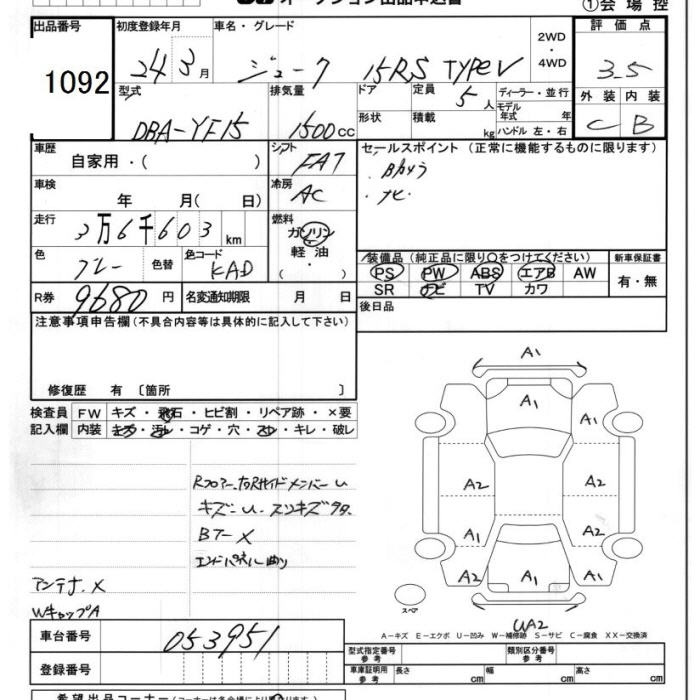 出品番号 初度登録年月 車名・グレード 2WD ・ 4WD 評価点
①会場控
1092 24 3月 ジューク 15RS TYPEV 3.5
型式 排気量 ドア 定員 5人 ディーラー・並行 外装 内装
DBA-YF15 1500cc 形状 積載 kg モデル年式 年 C B
ハンドル 左・右
車歴 自家用・( ) シフト FAT セールスポイント (正常に機能するものに限ります)
車検 年 月( 日) 冷房 AC
ナビ
走行 3万6千603km 燃料 ガソリン
軽油
( ・ )
色 グレー 色替 色コード KAD 装備品 (純正品に限り○をつけてください) 新車保証書
PS PW ABS エアB AW 有・無
SR ナビ TV カワ
R券 9680円 名変通知期限 月 日 後日品
注意事項申告欄 (不具合内容等は具体的に記入して下さい)
修復歴 有 〔箇所 〕
検査員 FW キズ・飛石・ヒビ割・リペア跡・×要
記入欄 内装 キズ・汚レ・コゲ・穴・スレ・キレ・破レ
キズ・U
BTー X
エンドパネル曲り
アンテナ X
WキャップA
A1
A1
A1
A2 A2
A1 A1
A2 A1 A2
スペア
UA2
A-キズ E-エクボ U-凹み W-補修跡 S-サビ C-腐食 XX-交換済
車台番号 053951
型式指定番号 参考 類別区分番号 参考
登録番号 車庫証明用 参考 長さ cm 幅 cm 高さ cm